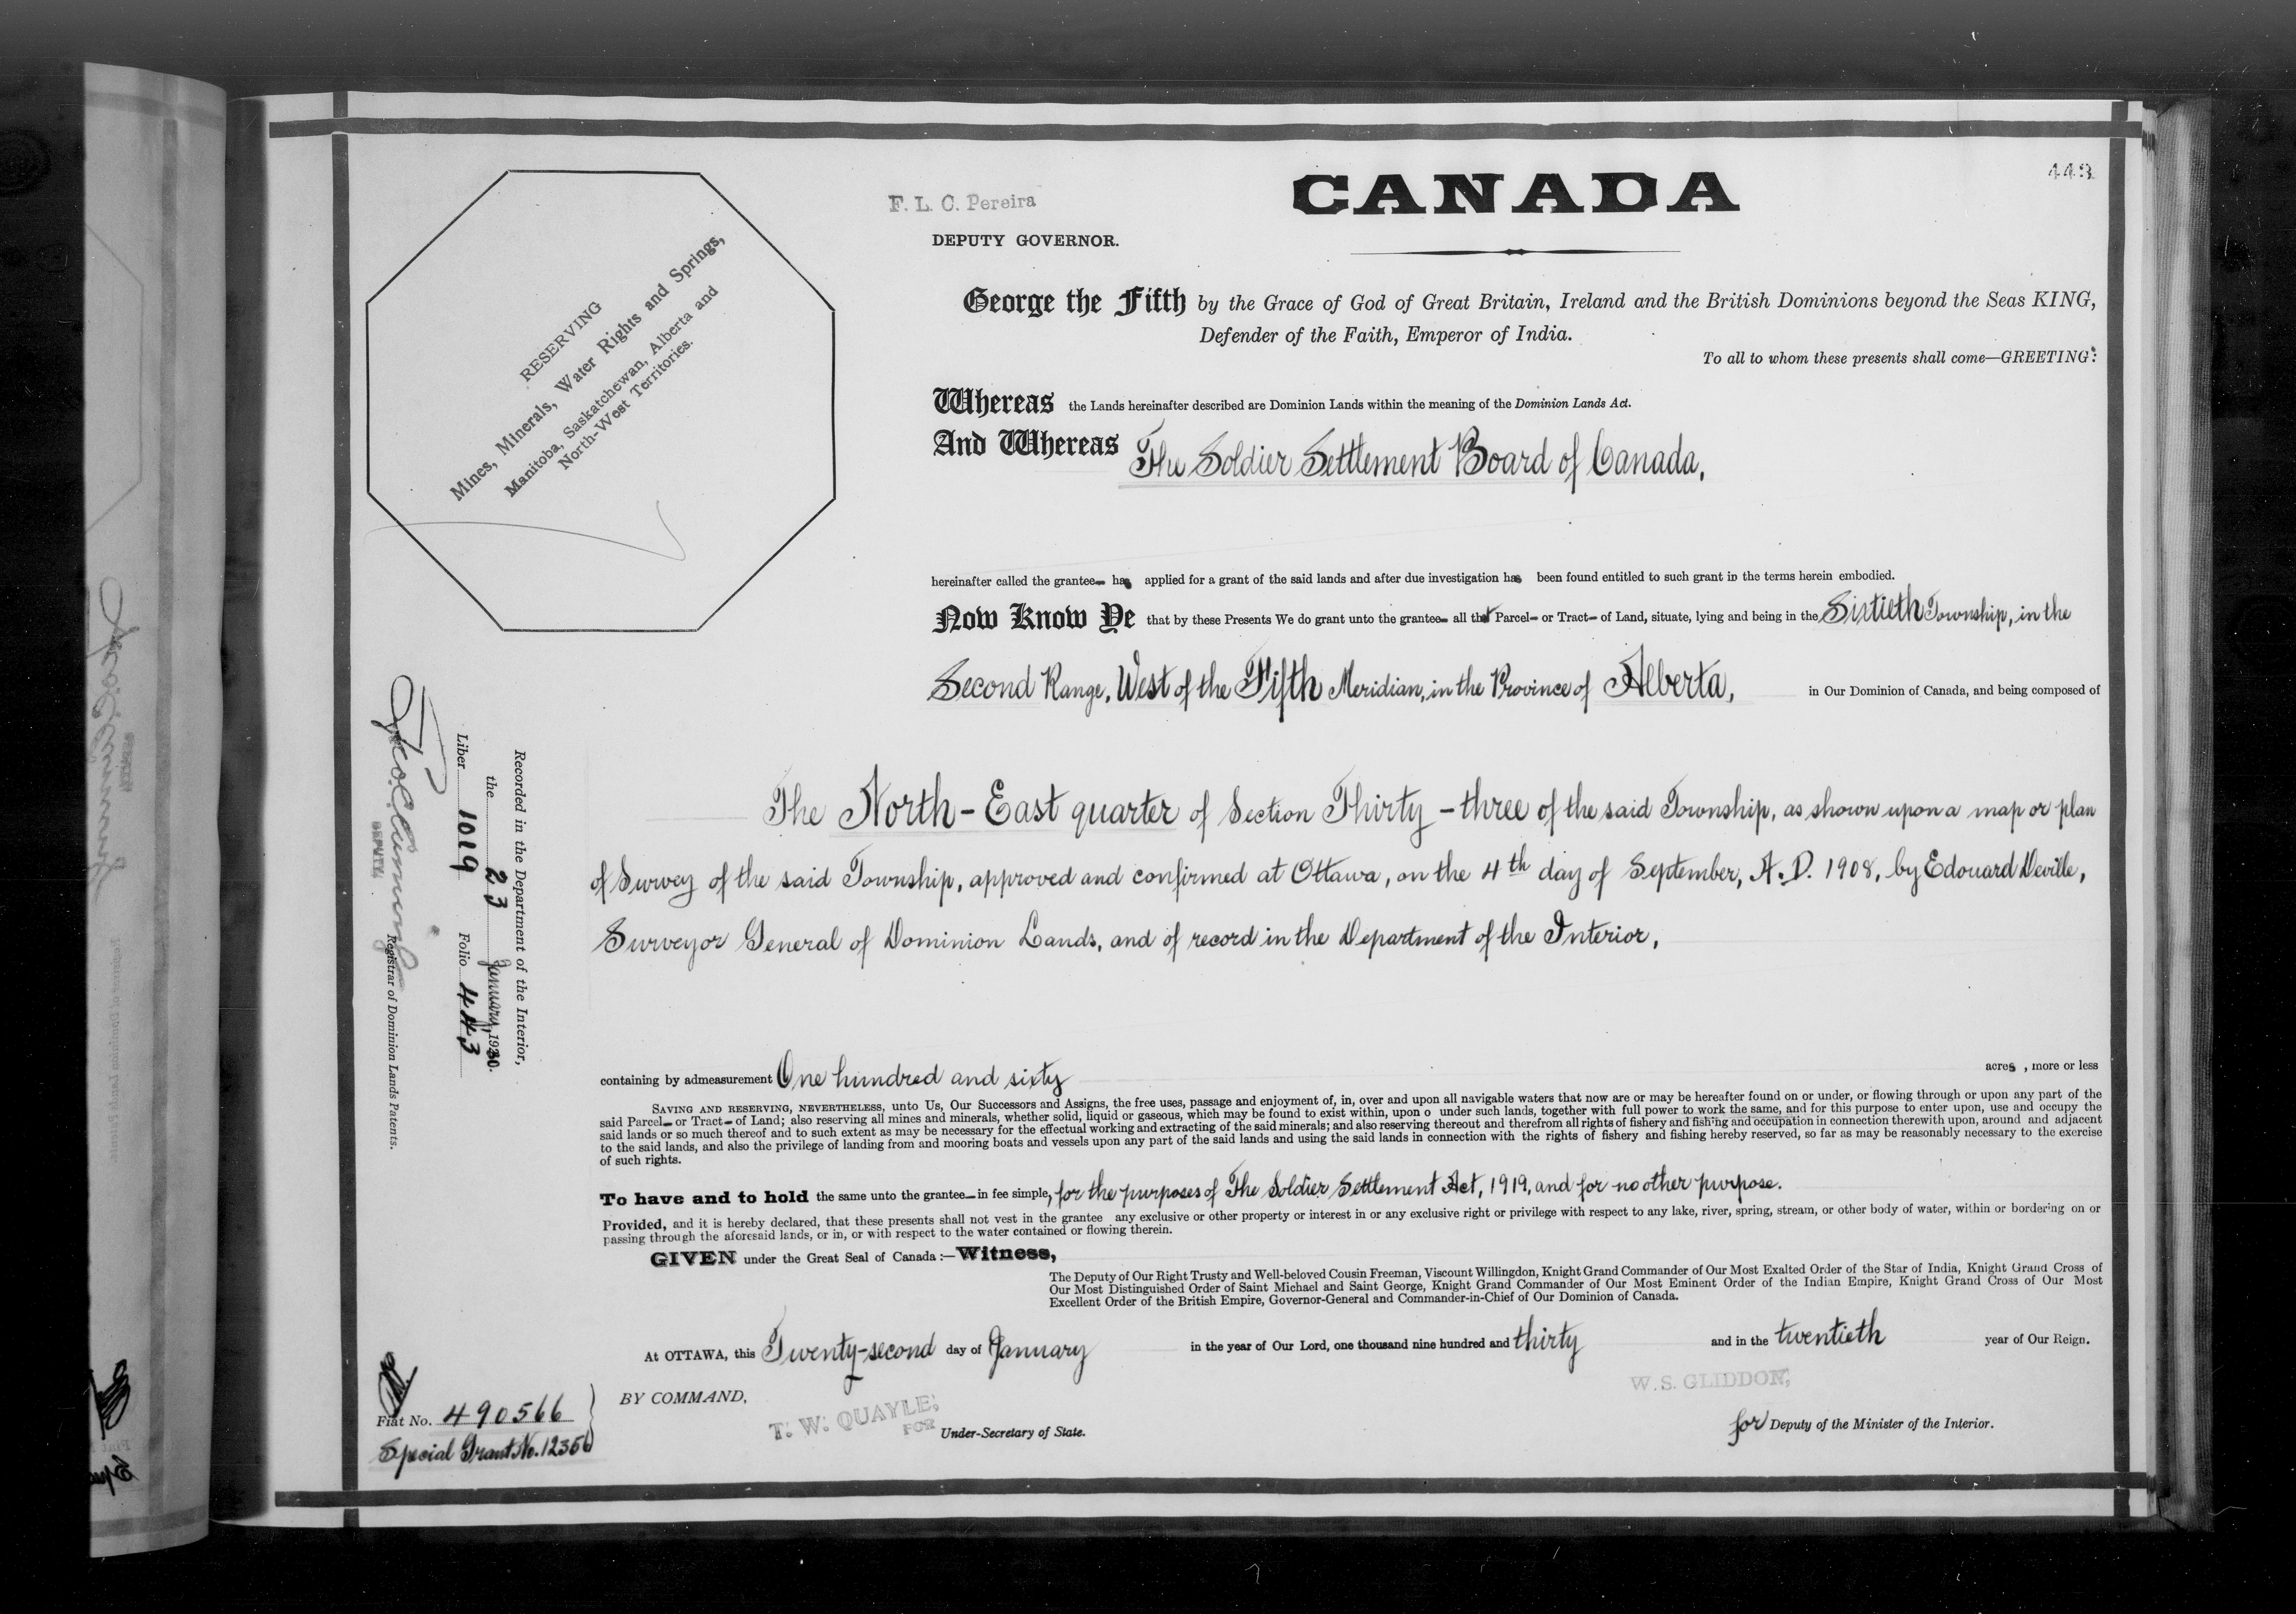 443
CANADA
F. L. C. Pereira
DEPUTY GOVERNOR.
RESERVING
Mines, Minerals, Water Rights and Springs,
Manitoba, Saskatchewan, Alberta and
North-West Territories.
George the Fifth by the Grace of God of Great Britain, Ireland and the British Dominions beyond the Seas KING,
Defender of the Faith, Emperor of India.
To all to whom these presents shall come—GREETING:
Whereas the Lands hereinafter described are Dominion Lands within the meaning of the Dominion Lands Act.
And Whereas The Soldier Settlement Board of Canada,
hereinafter called the grantee has applied for a grant of the said lands and after due investigation has been found entitled to such grant in the terms herein embodied.
Now Know Ye that by these Presents We do grant unto the grantee all that Parcel or Tract of Land, situate, lying and being in the Sixtieth Township, in the
Second Range, West of the Fifth Meridian, in the Province of Alberta, in Our Dominion of Canada, and being composed of
The North-East quarter of Section Thirty-three of the said Township, as shown upon a map or plan
of Survey of the said Township, approved and confirmed at Ottawa, on the 4th day of September, A.D. 1908, by Edouard Deville,
Surveyor General of Dominion Lands, and of record in the Department of the Interior,
containing by admeasurement One hundred and sixty acres, more or less
SAVING AND RESERVING, NEVERTHELESS, unto Us, Our Successors and Assigns, the free uses, passage and enjoyment of, in, over and upon all navigable waters that now are or may be hereafter found on or under, or flowing through or upon any part of the
said Parcel or Tract of Land; also reserving all mines and minerals, whether solid, liquid or gaseous, which may be found to exist within, upon o under such lands, together with full power to work the same, and for this purpose to enter upon, use and occupy the
said lands or so much thereof and to such extent as may be necessary for the effectual working and extracting of the said minerals; and also reserving thereout and therefrom all rights of fishery and fishing and occupation in connection therewith upon, around and adjacent
to the said lands, and also the privilege of landing from and mooring boats and vessels upon any part of the said lands and using the said lands in connection with the rights of fishery and fishing hereby reserved, so far as may be reasonably necessary to the exercise
of such rights.
To have and to hold the same unto the grantee in fee simple, for the purposes of The Soldier Settlement Act, 1919, and for no other purpose.
Provided, and it is hereby declared, that these presents shall not vest in the grantee any exclusive or other property or interest in or any exclusive right or privilege with respect to any lake, river, spring, stream, or other body of water, within or bordering on or
passing through the aforesaid lands, or in, or with respect to the water contained or flowing therein.
GIVEN under the Great Seal of Canada:—Witness,
The Deputy of Our Right Trusty and Well-beloved Cousin Freeman, Viscount Willingdon, Knight Grand Commander of Our Most Exalted Order of the Star of India, Knight Grand Cross of
Our Most Distinguished Order of Saint Michael and Saint George, Knight Grand Commander of Our Most Eminent Order of the Indian Empire, Knight Grand Cross of Our Most
Excellent Order of the British Empire, Governor-General and Commander-in-Chief of Our Dominion of Canada.
At OTTAWA, this Twenty-second day of January in the year of Our Lord, one thousand nine hundred and thirty and in the twentieth year of Our Reign.
BY COMMAND,
T. W. QUAYLE,
FOR Under-Secretary of State.
W. S. GLIDDON,
for Deputy of the Minister of the Interior.
Recorded in the Department of the Interior,
the 23 January, 1930.
Liber 1019 Folio 443
DEPUTY Registrar of Dominion Lands Patents.
Fiat No. 490566
Special Grant No. 12356